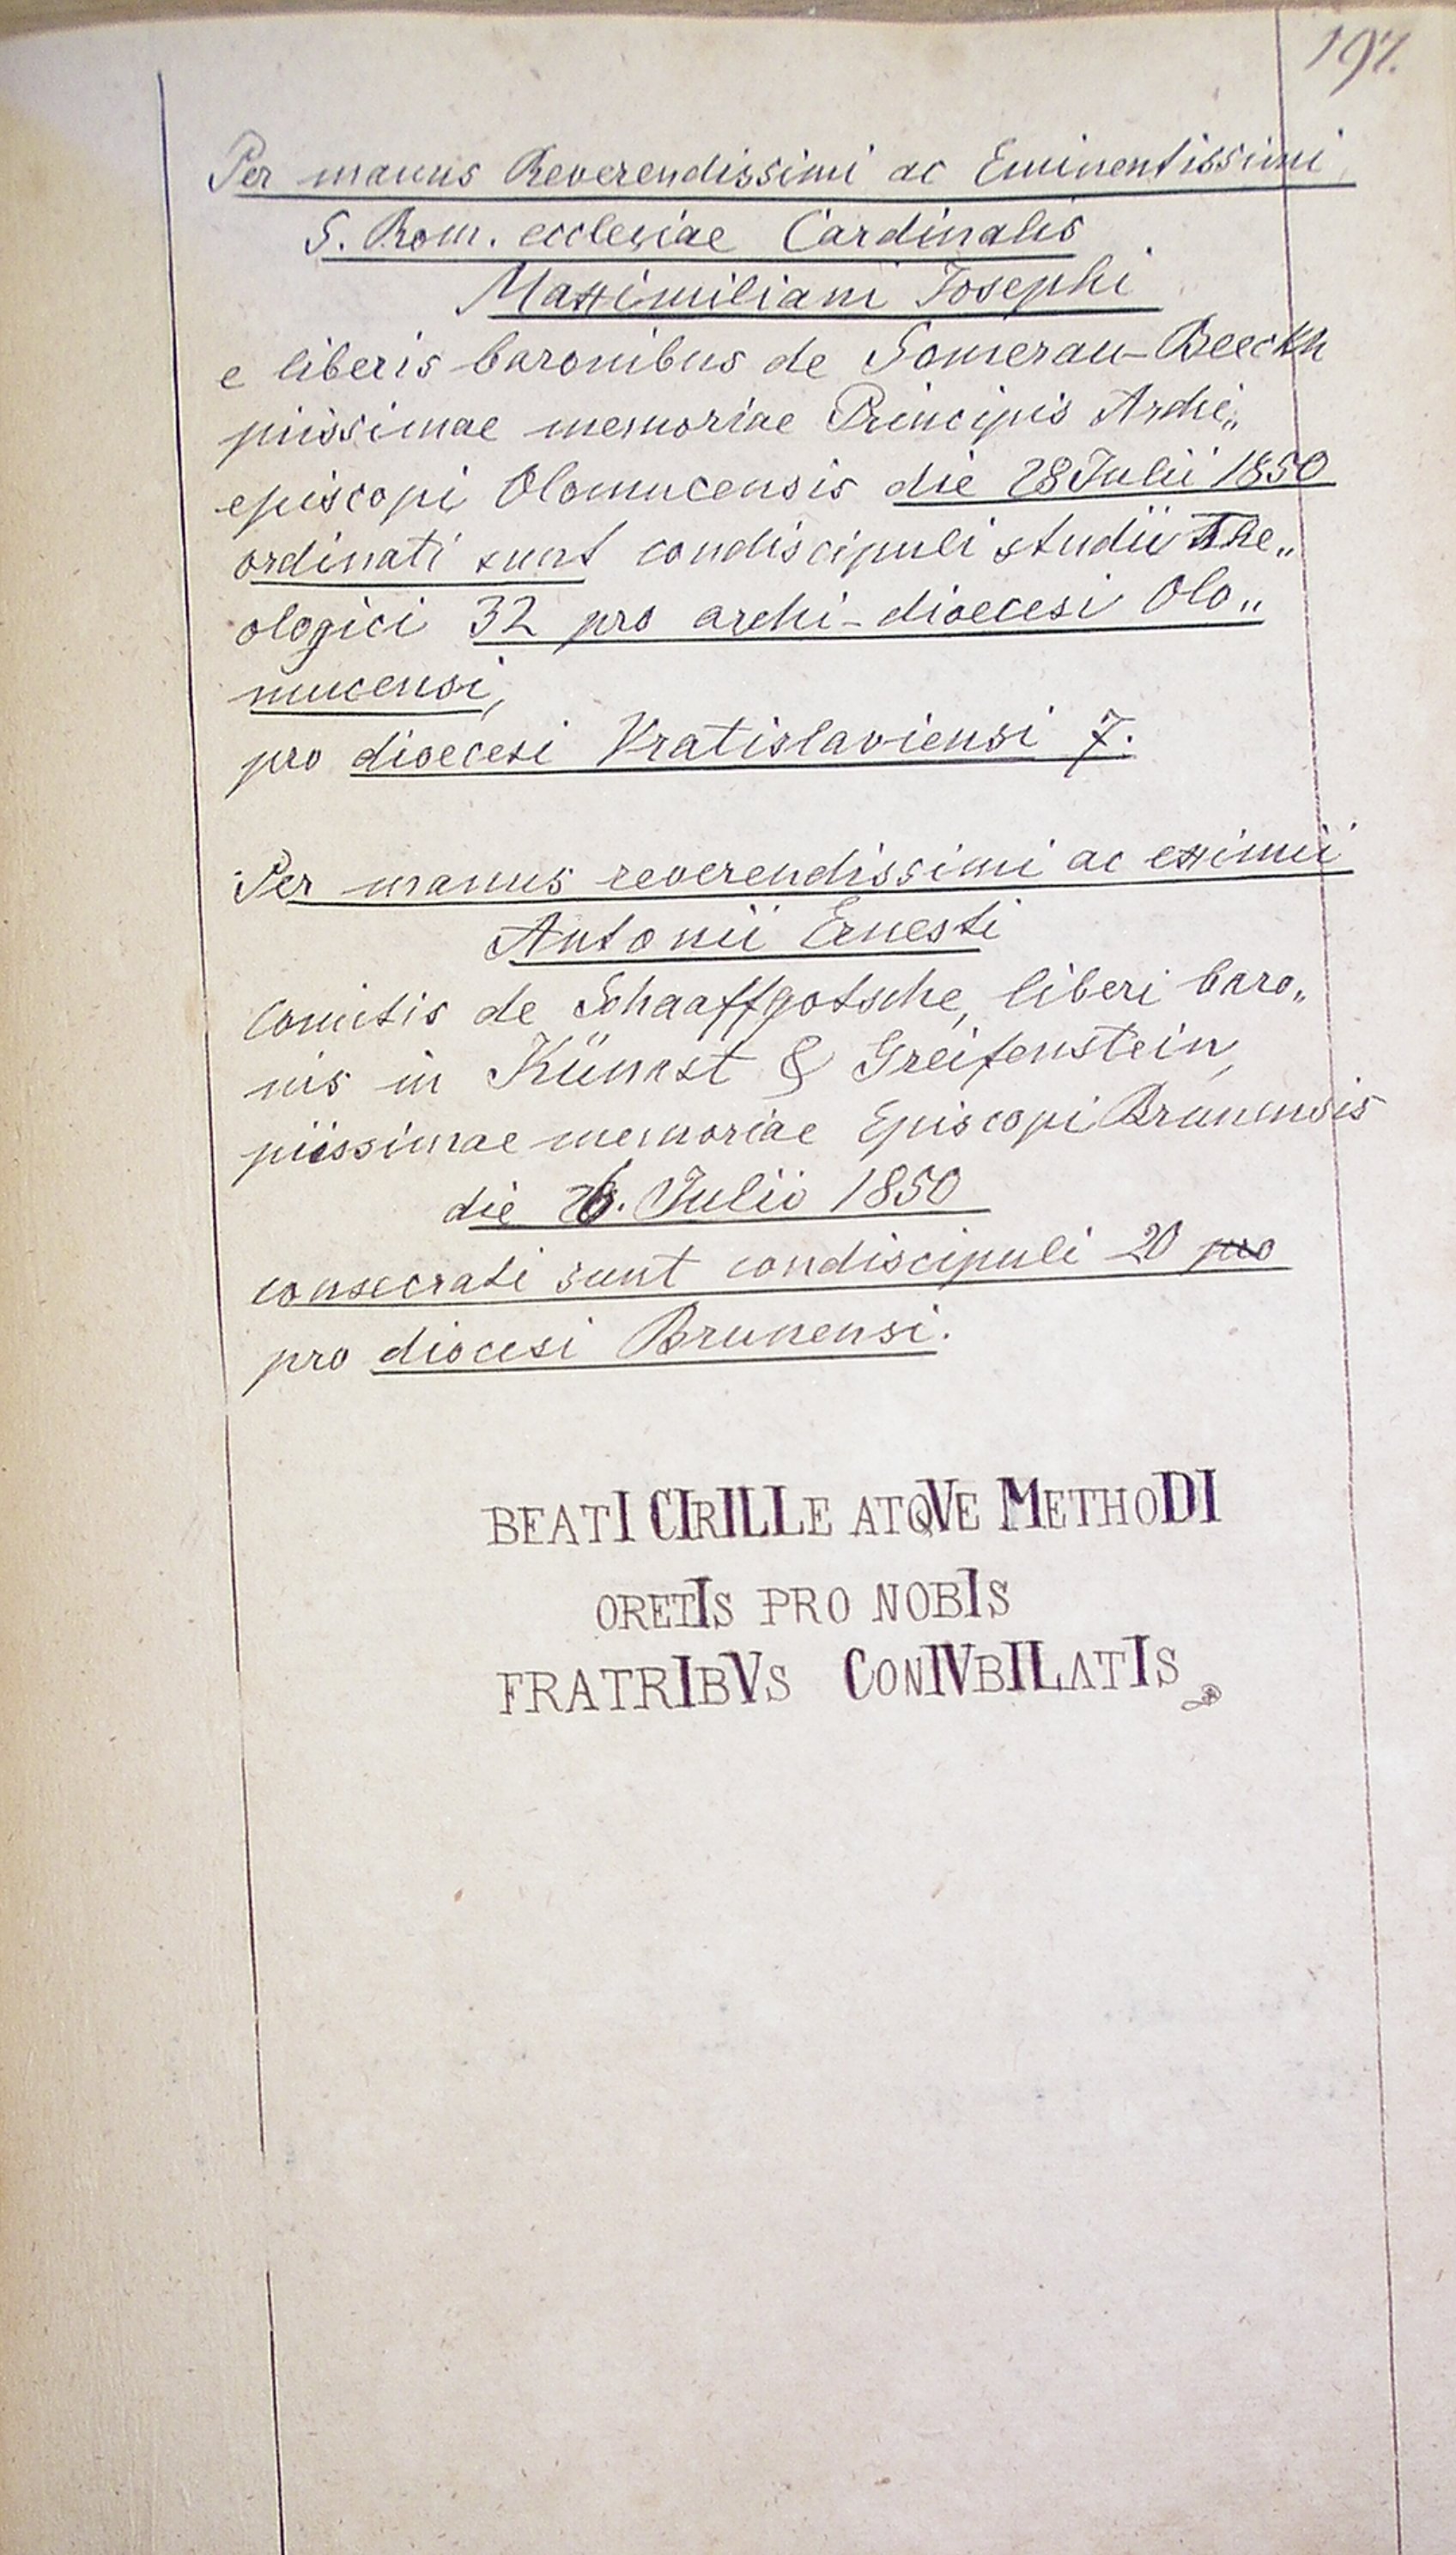 197.
Per manus Reverendissimi ac Eminentissimi
S. Rom. ecclesiae Cardinalis
Maximiliani Josephi
e liberis baronibus de Somerau-Beeckh
piissimae memoriae Principis Archi„
episcopi Olomucensis die 28 Julii 1850
ordinati sunt condiscipuli studii The„
ologici 32 pro archi-dioecesi Olo„
mucensi,
pro dioecesi Vratislaviensi 7.
Per manus reverendissimi ac eximii
Antonii Ernesti
Comitis de Schaaffgotsche, liberi baro„
nis in Künast & Greifenstein,
piissimae memoriae Episcopi Brunensis
die 26. Julii 1850
consecrati sunt condiscipuli 20 pro
pro diocesi Brunensi.
BEATI CIRILLE ATQVE METHODI
ORETIS PRO NOBIS
FRATRIBVS CONIVBILATIS